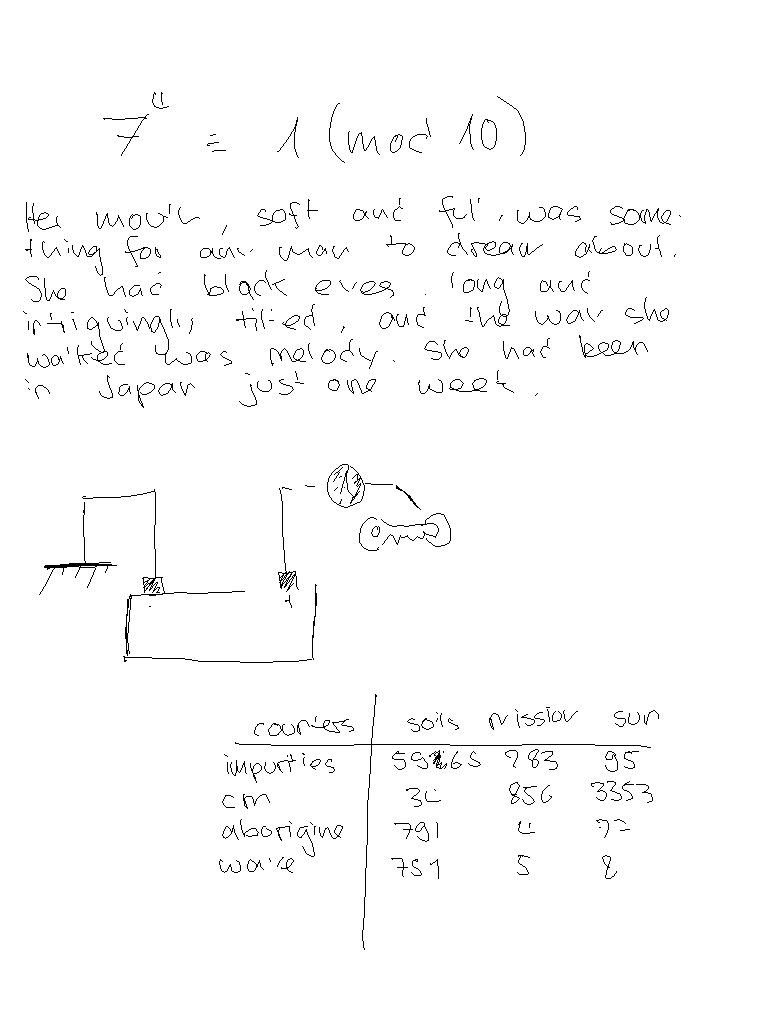 7⁴ ≡ 1 (mod 10)
Her mouth, soft and full, was some-
thing for any man to dream about.
She had black eyes, long and
intriguingly tilted, and the way she
walked was melody. She had been
in Japan just one week.
- +
counters soils mission sun
impurities 95
cm 856 3353
aborigine 791 4
751 5